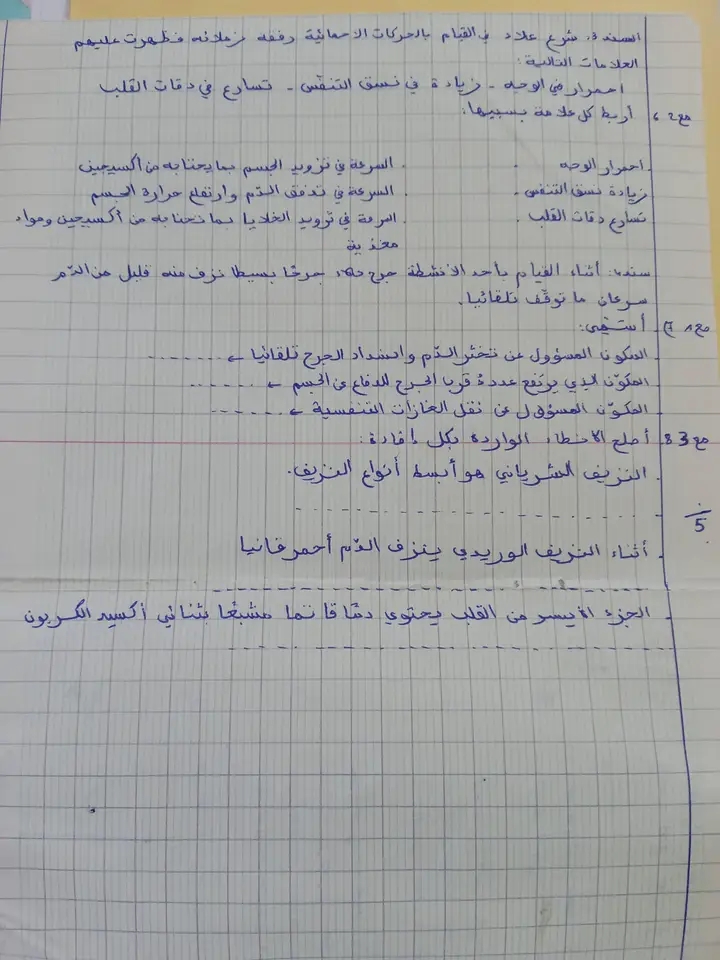 السند 3: شرع علاء في القيام بالحركات الاحمائية رفقة زملائه فظهرت عليهم
العلامات التالية:
احمرار في الوجه - زيادة في نسق التنفس - تسارع في دقات القلب
مع 2 6 أربط كل علامة بسببها:
احمرار الوجه . . السرعة في تزويد الجسم بما يحتاجه من أكسيجين
زيادة نسق التنفس . . السرعة في تدفق الدّم وارتفاع حرارة الجسم
تسارع دقات القلب . . السرعة في تزويد الخلايا بما تحتاجه من أكسيجين ومواد
مغذية
سند 4: أثناء القيام بأحد الأنشطة جرح جرحًا بسيطا نزف منه قليل من الدّم
سرعان ما توقّف تلقائيا.
مع 1 7) أسمّي:
. المكون المسؤول عن تخثر الدّم وانسداد الجرح تلقائيا ← .......
. المكوّن الذي يرتفع عدده قرب الجرح للدفاع عن الجسم ← ......
. المكوّن المسؤول عن نقل الغازات التنفسية ← ......
مع 3 8. أصلح الأخطاء الواردة بكل إفادة:
. النزيف الشرياني هو أبسط أنواع النزيف.
. - - - - - - - - - - - - - - -
/5
. أثناء النزيف الوريدي ينزف الدّم أحمر قانيا
- - - - - - - - - - - - - - - - - - -
. الجزء الأيسر من القلب يحتوي دمًا قاتما مشبعًا بثنائي أكسيد الكربون
- - - - - - - - - - - - - - - - - - -